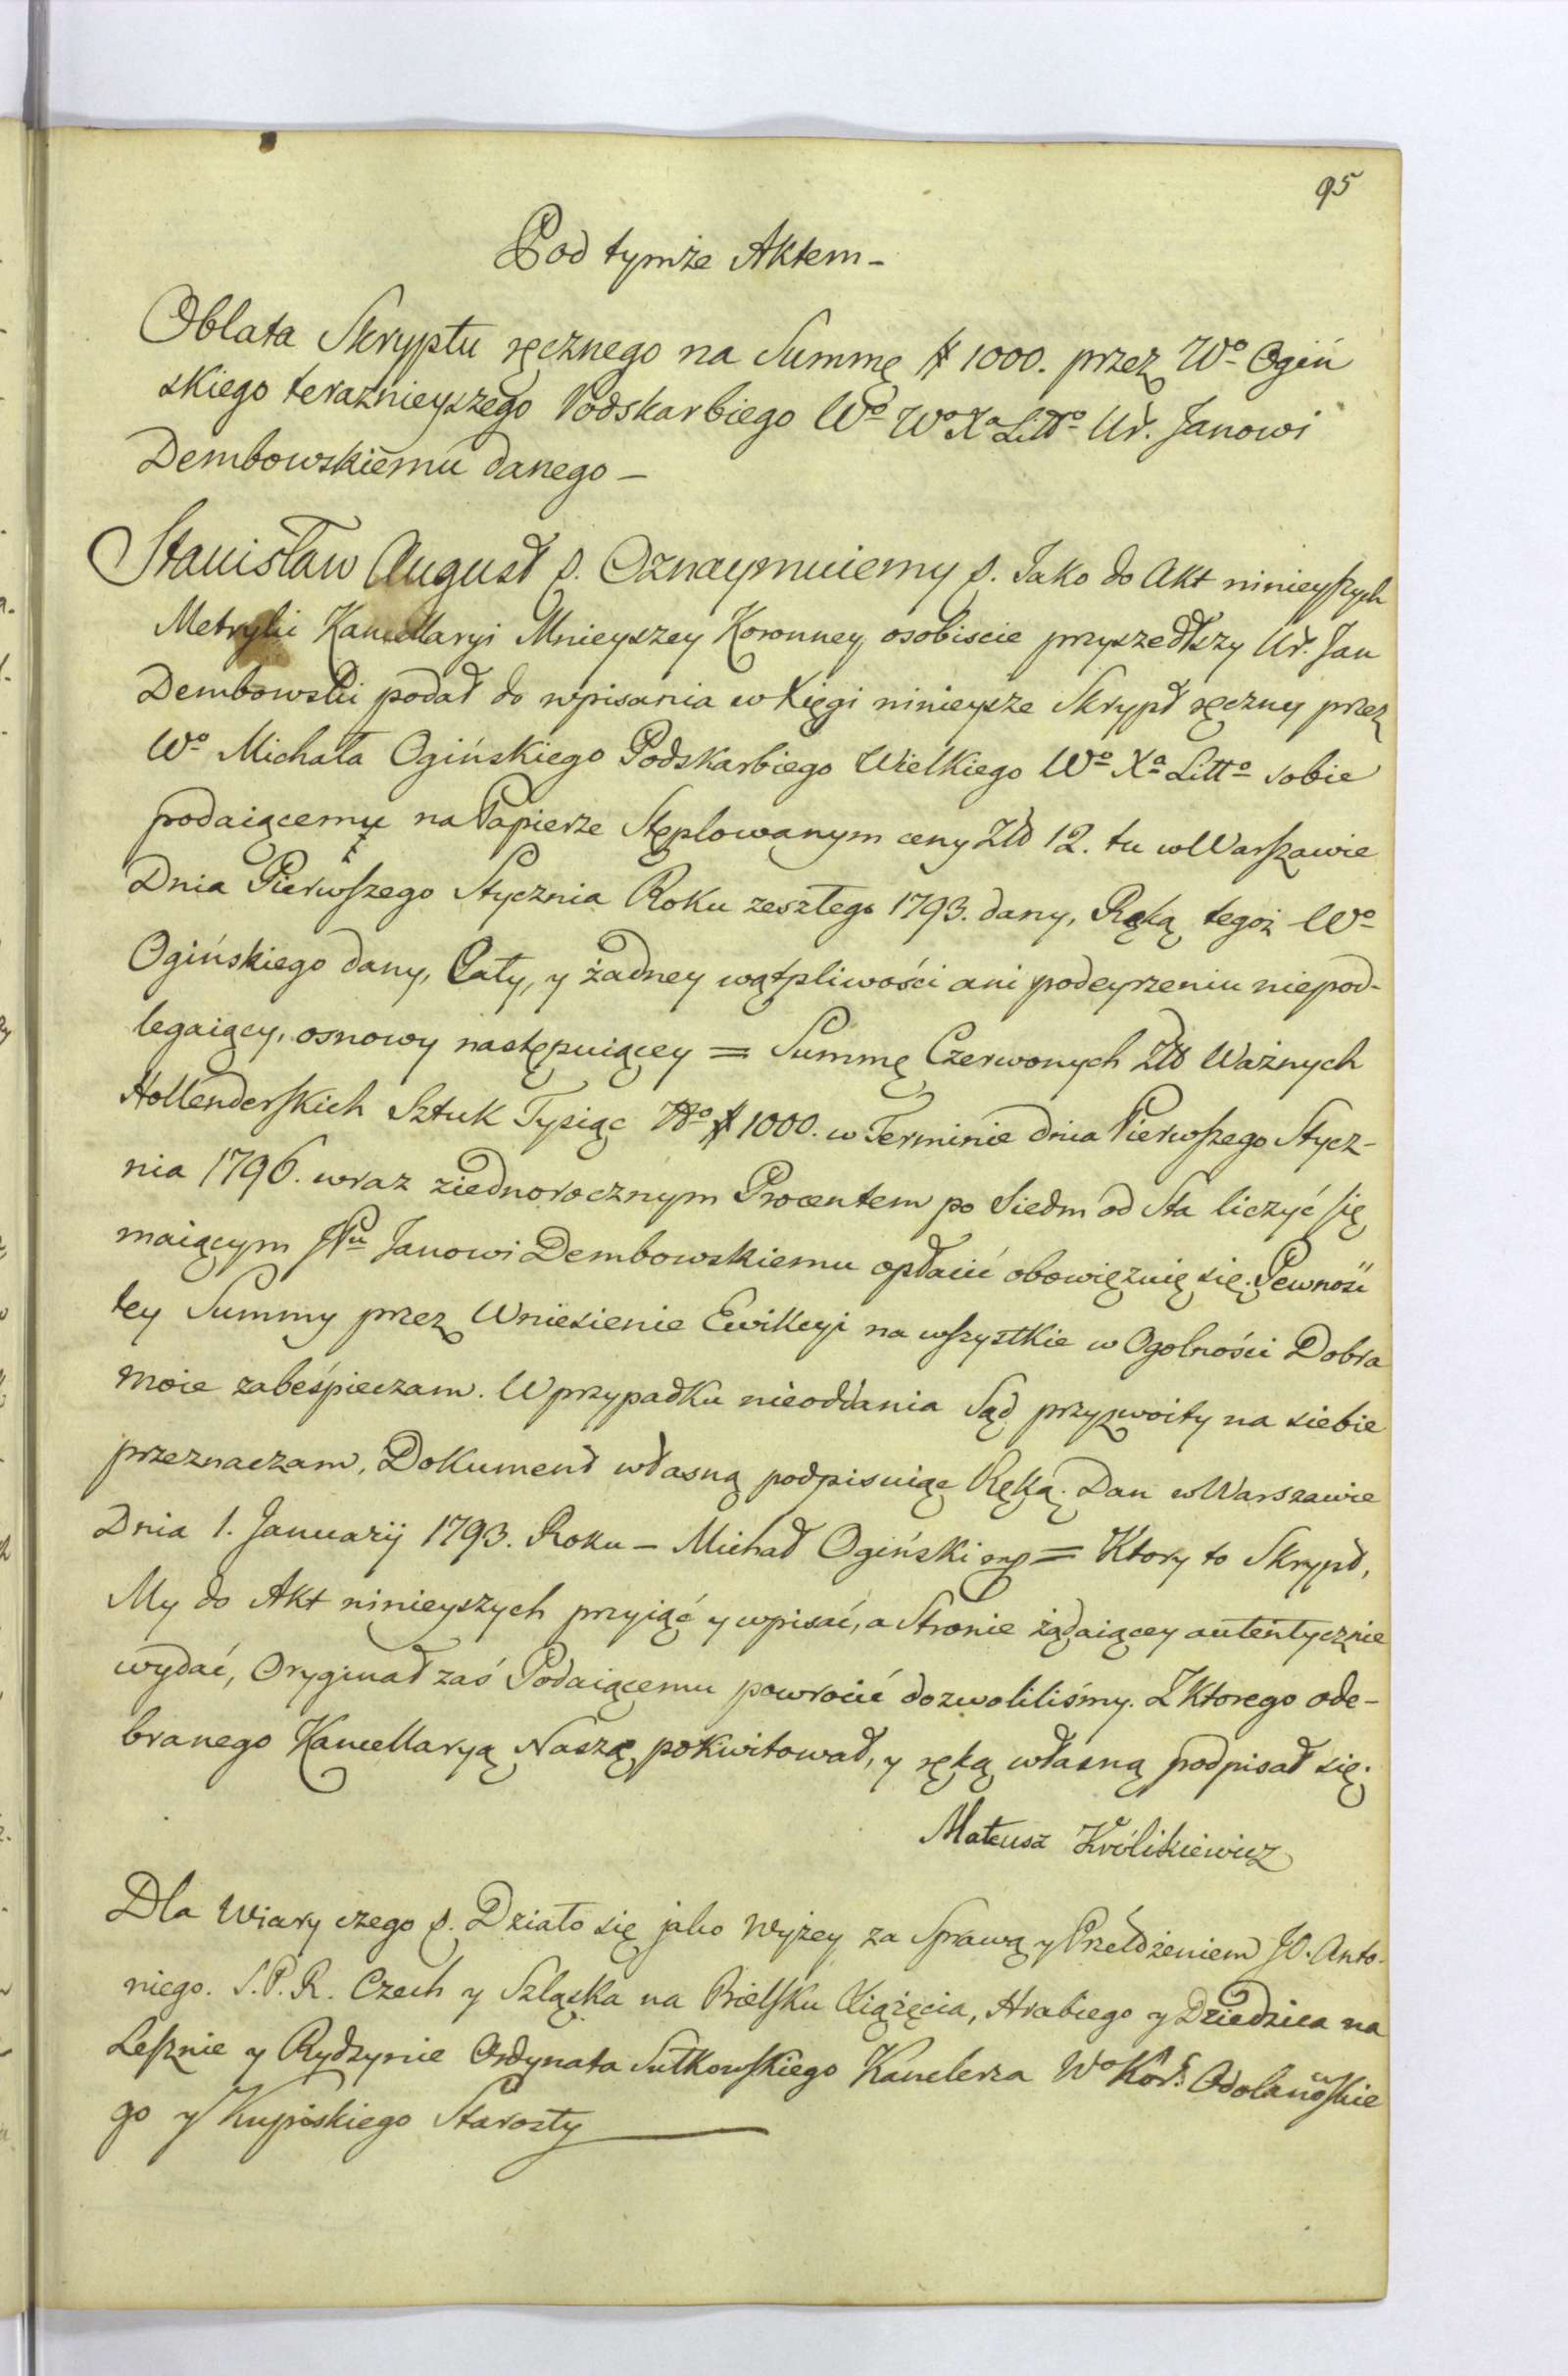 95
Pod tymże Aktem -
Oblata Skryptu ręcznego na Summę # 1000. przez Wo Ogiń
skiego teraznieyszego Podskarbiego Wo Wo Xa Litto Ur. Janowi
Dembowskiemu danego -
Stanisław August p. Oznaymuiemy p. Jako do Akt ninieyszych
Metryki Kancellaryi Mnieyszey Koronney osobiscie przyszedłszy Ur. Jan
Dembowski podał do wpisania w Xięgi ninieysze Skrypt ręczny przez
Wo Michała Ogińskiego Podskarbiego Wielkiego Wo Xa Litto sobie
podaiącemu na Papierze Stęplowanym ceny Złł 12. tu w Warszawie
Dnia Pierwszego Stycznia Roku zeszłego 1793. dany, Ręką tegoż Wo
Ogińskiego dany, Cały, y żadney wątpliwości ani podeyrzeniu niepod-
legaiący, osnowy następuiącey = Summę Czerwonych Złł Ważnych
Hollenderskich Sztuk Tysiąc No # 1000. w Terminie dnia Pierwszego Stycz-
nia 1796. wraz ziednorocznym Procentem po Siedm od Sta liczyć się
maiącym JPu Janowi Dembowskiemu opłacić obowięzuię się. Pewność
tey Summy przez Wniesienie Ewikcyi na wszystkie w Ogolności Dobra
moie zabeśpieczam. W przypadku nieoddania Sąd przyzwoity na siebie
przeznaczam, Dokument własną podpisuiąc Ręką. Dan w Warszawie
Dnia 1. Januarij 1793. Roku - Michał Ogiński mp = Ktory to Skrypt,
My do Akt ninieyszych przyiąć y wpisać, a Stronie żądaiącey autentycznie
wydać, Oryginał zaś Podaiącemu powrocić dozwoliliśmy. Z Ktorego ode-
branego Kancellaryą Naszę pokwitował, y ręką własną podpisał się.
Mateusz Królikiewicz
Dla Wiary czego p. Działo się jako Wyżey za Sprawą y Przełożeniem JO. Anto-
niego. S.P.R. Czech y Szląska na Bielsku Xiążęcia, Hrabiego y Dziedzica na
Lesznie y Rydzynie Ordynata Sułkowskiego Kanclerza Wo Kor. Odolanowskie
go y Kupiskiego Starosty